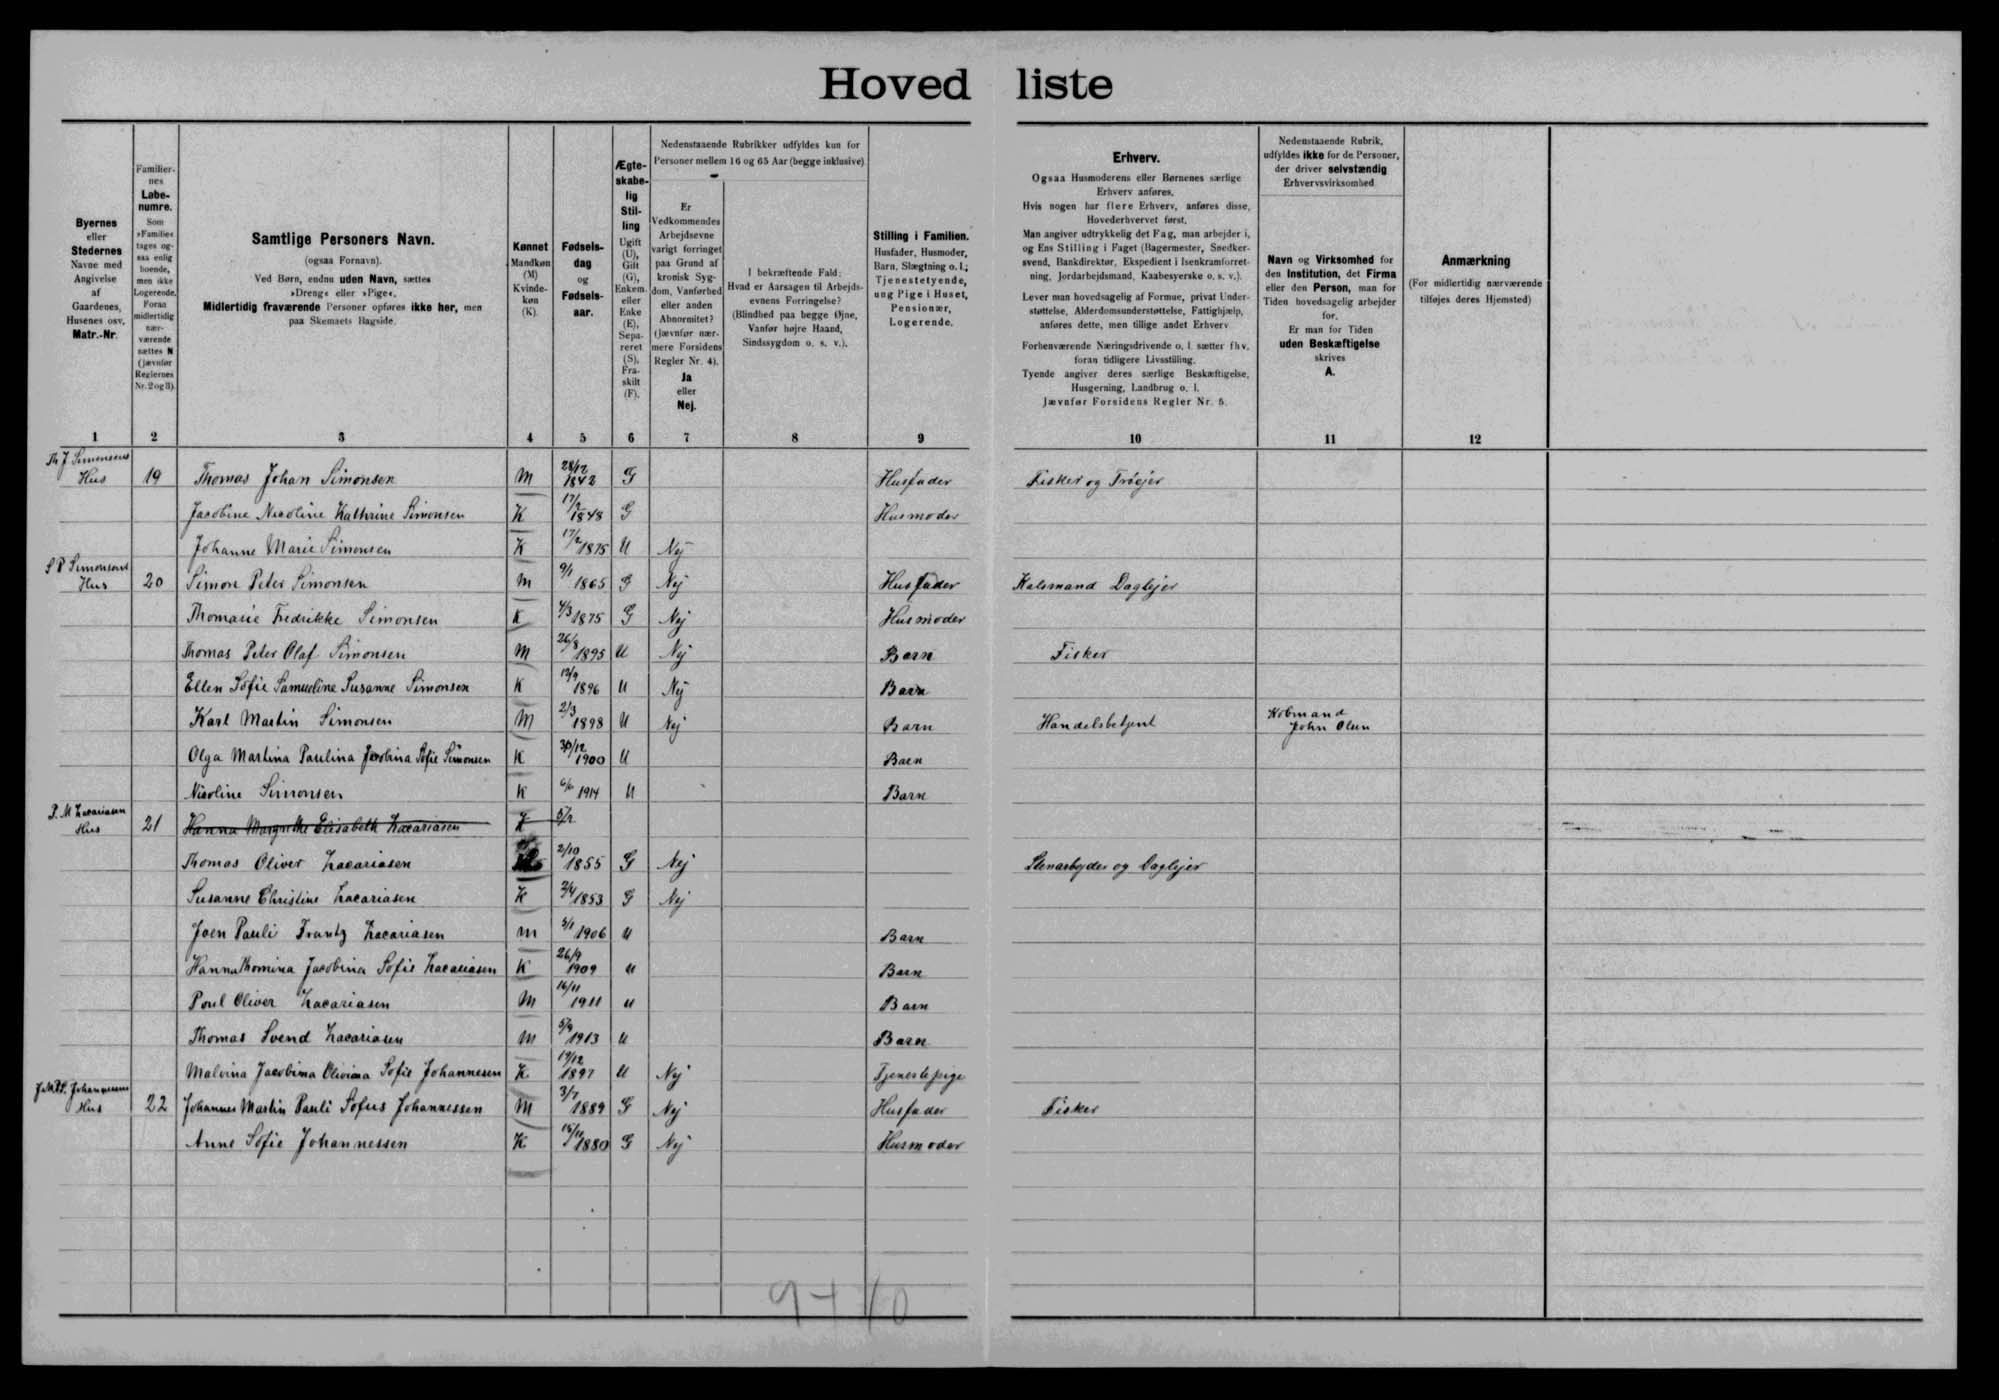 Hoved liste
Byernes
eller
Stedernes
Navne med
Angivelse
af
Gaardenes,
Husenes osv.
Matr.-Nr.
Familier-
nes
Løbe-
numre.
Som
»Familie«
tages og-
saa enlig
boende,
men ikke
Logerende.
Foran
midlertidig
nær-
værende
sættes N
(jævnfør
Reglernes
Nr. 2 og 8).
Samtlige Personers Navn.
(ogsaa Fornavn).
Ved Børn, endnu uden Navn, sættes
»Dreng« eller »Pige«.
Midlertidig fraværende Personer opføres ikke her, men
paa Skemaets Bagside.
Kønnet
Mandkøn
(M)
Kvinde-
køn
(K).
Fødsels-
dag
og
Fødsels-
aar.
Ægte-
skabe-
lig
Stil-
ling
Ugift
(U),
Gift
(G),
Enkem.
eller
Enke
(E),
Sepa-
reret
(S),
Fra-
skilt
(F).
Nedenstaaende Rubrikker udfyldes kun for
Personer mellem 16 og 65 Aar (begge inklusive)
Er
Vedkommendes
Arbejdsevne
varigt forringet
paa Grund af
kronisk Syg-
dom, Vanførhed
eller anden
Abnormitet?
(Jævnfør nær-
mere Forsidens
Regler Nr. 4).
Ja
eller
Nej.
I bekræftende Fald:
Hvad er Aarsagen til Arbejds-
evnens Forringelse?
(Blindhed paa begge Øjne,
Vanfør højre Haand,
Sindssygdom o. s. v.).
Stilling i Familien.
Husfader, Husmoder,
Barn, Slægtning o. l.;
Tjenestetyende,
ung Pige i Huset,
Pensionær,
Logerende.
Erhverv.
Ogsaa Husmoderens eller Børnenes særlige
Erhverv anføres.
Hvis nogen har flere Erhverv, anføres disse,
Hovederhvervet først.
Man angiver udtrykkelig det Fag, man arbejder i,
og Ens Stilling i Faget (Bagermester, Snedker-
svend, Bankdirektør, Ekspedient i Isenkramforret-
ning, Jordarbejdsmand, Kaabesyerske o. s. v.).
Lever man hovedsagelig af Formue, privat Under-
støttelse, Alderdomsunderstøttelse, Fattighjælp,
anføres dette, men tillige andet Erhverv
Forhenværende Næringsdrivende o. l. sætter fhv.
foran tidligere Livsstilling.
Tyende angiver deres særlige Beskæftigelse,
Husgerning, Landbrug o. l.
Jævnfør Forsidens Regler Nr. 5.
Nedenstaaende Rubrik,
udfyldes ikke for de Personer,
der driver selvstændig
Erhvervsvirksomhed
Navn og Virksomhed for
den Institution, det Firma
eller den Person, man for
Tiden hovedsagelig arbejder
for.
Er man for Tiden
uden Beskæftigelse
skrives
A.
Anmærkning
(For midlertidig nærværende
tilføjes deres Hjemsted)
1 2 3 4 5 6 7 8 9 10 11 12
Th J Simonsens
Hus 19 Thomas Johan Simonsen M 28/12 1842 G Husfader Fisker og Trøejer
Jacobine Nicoline Kathrine Simonsen K 17/2 1848 G Husmoder
Johanne Marie Simonsen K 17/2 1875 U Nej
S P Simonsens
Hus 20 Simon Peter Simonsen M 9/1 1865 G Nej Husfader Kalsmand Daglejer
Thomasie Fredrikke Simonsen K 4/3 1875 G Nej Husmoder
Thomas Peter Olaf Simonsen M 26/8 1895 U Nej Barn Fisker
Ellen Sofie Samueline Susanne Simonsen K 12/9 1896 U Nej Barn
Karl Martin Simonsen M 2/3 1898 U Nej Barn Handelsbetjent Købmand
John Olsen
Olga Martina Paulina Jacobina Sofie Simonsen K 30/12 1900 U Barn
Nicoline Simonsen K 6/6 1914 U Barn
P. M Zacariasen
Hus 21 Hanna Margrethe Elisabeth Zacariasen K 5/2
Thomas Oliver Zacariasen 2/10 1855 G Nej Stenarbyder og Daglejer
Susanne Christine Zacariasen K 2/4 1853 G Nej
Joen Pauli Frantz Zacariasen M 5/1 1906 U Barn
Hanna Thomina Jacobina Sofie Zacariasen K 26/9 1909 U Barn
Poul Oliver Zacariasen M 16/11 1911 U Barn
Thomas Svend Zacariasen M 5/9 1913 U Barn
Malvina Jacobina Olivina Sofie Johannesen K 19/12 1897 U Nej Tjenestepige
J. M. P. S. Johannesens
Hus 22 Johannes Martin Pauli Sofus Johannessen M 3/7 1889 G Nej Husfader Fisker
Anne Sofie Johannessen K 15/11 1880 G Nej Husmoder
9 + 10